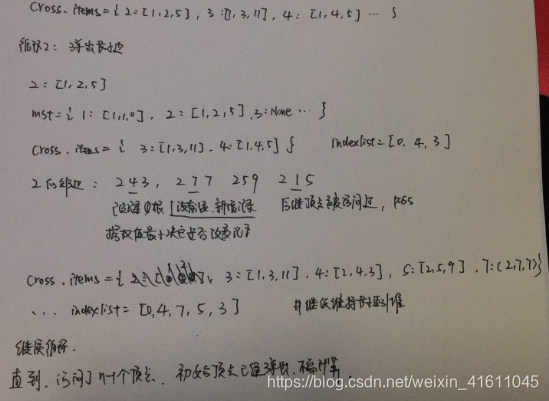 cross.items={ 2:[1,2,5], 3:[1,3,11], 4:[1,4,5] ... }
循环2: 弹出最小边
2:[1,2,5]
mst={ 1:[1,1,0], 2:[1,2,5], 3:None ... }
cross.items={ 3:[1,3,11], 4:[1,4,5] } indexlist=[0,4,3]
2的邻边: 243, 277 259 215
后继顶点被访问过, pass
cross.items={ 3:[1,3,11], 4:[2,4,3], 5:[2,5,9], 7:[2,7,7]}
... indexlist=[0,4,7,5,3] #继续维持最小堆
继续循环.
直到, 访问了n-1个顶点, 初始顶点已经弹出, 不需计算
https://blog.csdn.net/weixin_41611045